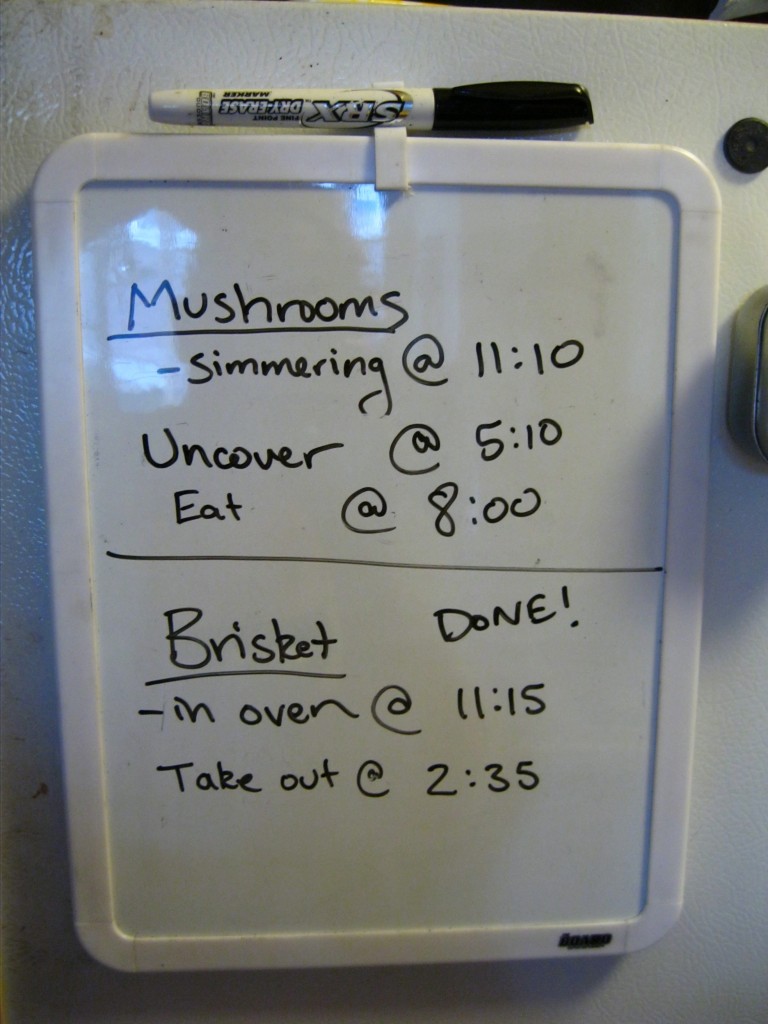 SRX
FINE POINT
DRY-ERASE
MARKER
Mushrooms
-simmering @ 11:10
Uncover @ 5:10
Eat @ 8:00
DONE!
Brisket
-in oven @ 11:15
Take out @ 2:35
THE BOARD